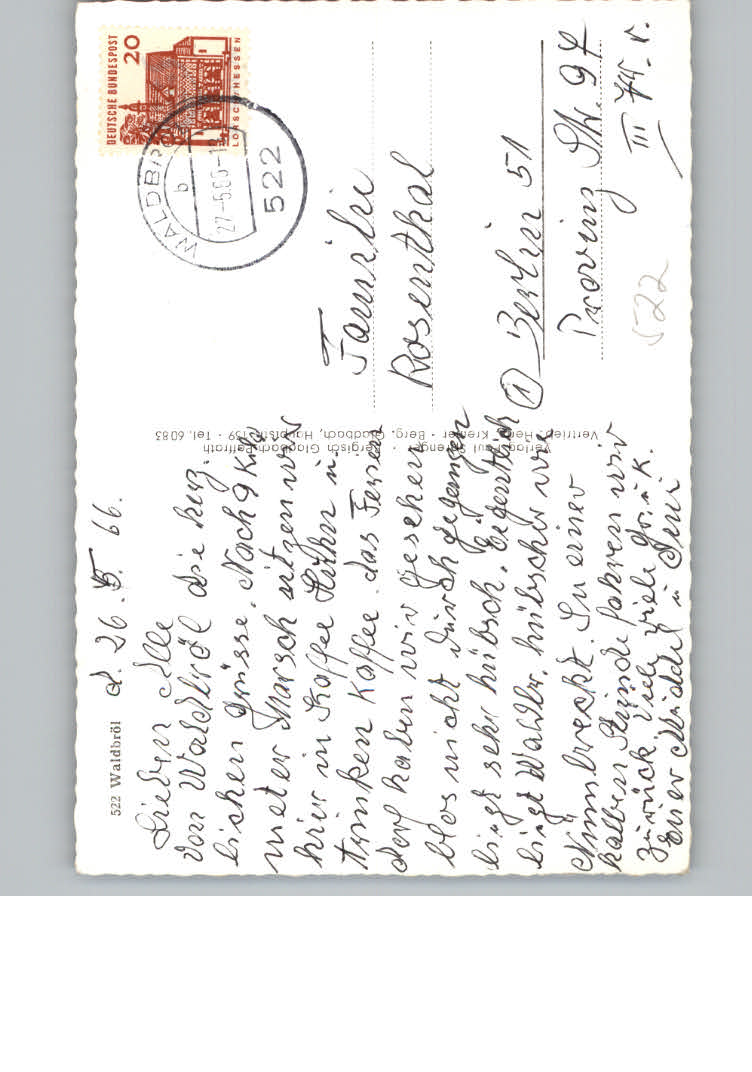 522 Waldbröl
d. 26.5.66.
Lieben Alle
Von Waldbröl die herz-
lichen Grüsse. Nach 9 Kilo
meter Marsch sitzen wir
hier in Kaffee u.
trinken Kaffee. das Feren
dorf haben wir gesehen
blos nicht durch gegangen
liegt sehr hübsch. Eigentlich
liegt Waldbr. hübscher wie
Nümbrecht. In einer
halben Stunde fahren wir
zurück. Viele viele Gr. u. K.
Euer Mädel u.
Verlag Paul Spenger · Bergisch Gladbach-Paffrath
Vertrieb: Herm. Kremer · Berg. Gladbach, Hauptstr. 159 · Tel. 6083
DEUTSCHE BUNDESPOST
20
LORSCH/HESSEN
522
WALDBRÖL
b
27.-5.66-12
Familie
Rosenthal
① Berlin 51
Provinz Str. 97
III Tr. r.
522